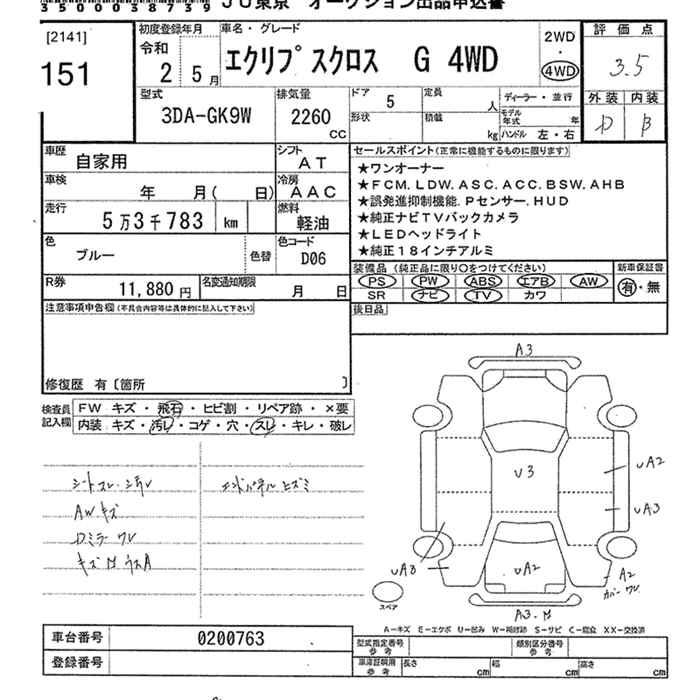 35000038739 JU東京 オークション出品申込書
[2141]
151
初度登録年月
令和
2 5月
車名・グレード
エクリプスクロス G 4WD
2WD
・
4WD
評価点
3.5
外装 内装
D B
型式
3DA-GK9W
排気量
2260
CC
ドア 5
定員 人
形状
積載 kg
ディーラー・並行
モデル年式 年
ハンドル 左・右
車歴 自家用
シフト AT
車検 年 月( 日)
冷房 AAC
走行 5万3千783 km
燃料 軽油
色 ブルー
色替
色コード D06
R券 11,880円
名変通知期限 月 日
セールスポイント(正常に機能するものに限ります)
★ワンオーナー
★FCM.LDW.ASC.ACC.BSW.AHB
★誤発進抑制機能.Pセンサー.HUD
★純正ナビTVバックカメラ
★LEDヘッドライト
★純正18インチアルミ
装備品(純正品に限り○をつけてください)
PS PW ABS エアB AW
SR ナビ TV カワ
新車保証書
有・無
後日品
注意事項申告欄(不具合内容等は具体的に記入して下さい)
修復歴 有〔箇所 〕
検査員記入欄
FW キズ・飛石・ヒビ割・リペア跡・×要
内装 キズ・汚レ・コゲ・穴・スレ・キレ・破レ
シートスレ.シミル
エンドパネル ヒズミ
AWキズ
Dミラー ワレ
A3
U3
UA2
UA3
UA3
UA2
A2
カバー ワレ
A3.
スペア
A-キズ E-エクボ U-凹み W-補修跡 S-サビ C-腐食 XX-交換済
車台番号 0200763
登録番号
型式指定番号 参考
類別区分番号 参考
車庫証明用 参考
長さ cm
幅 cm
高さ cm